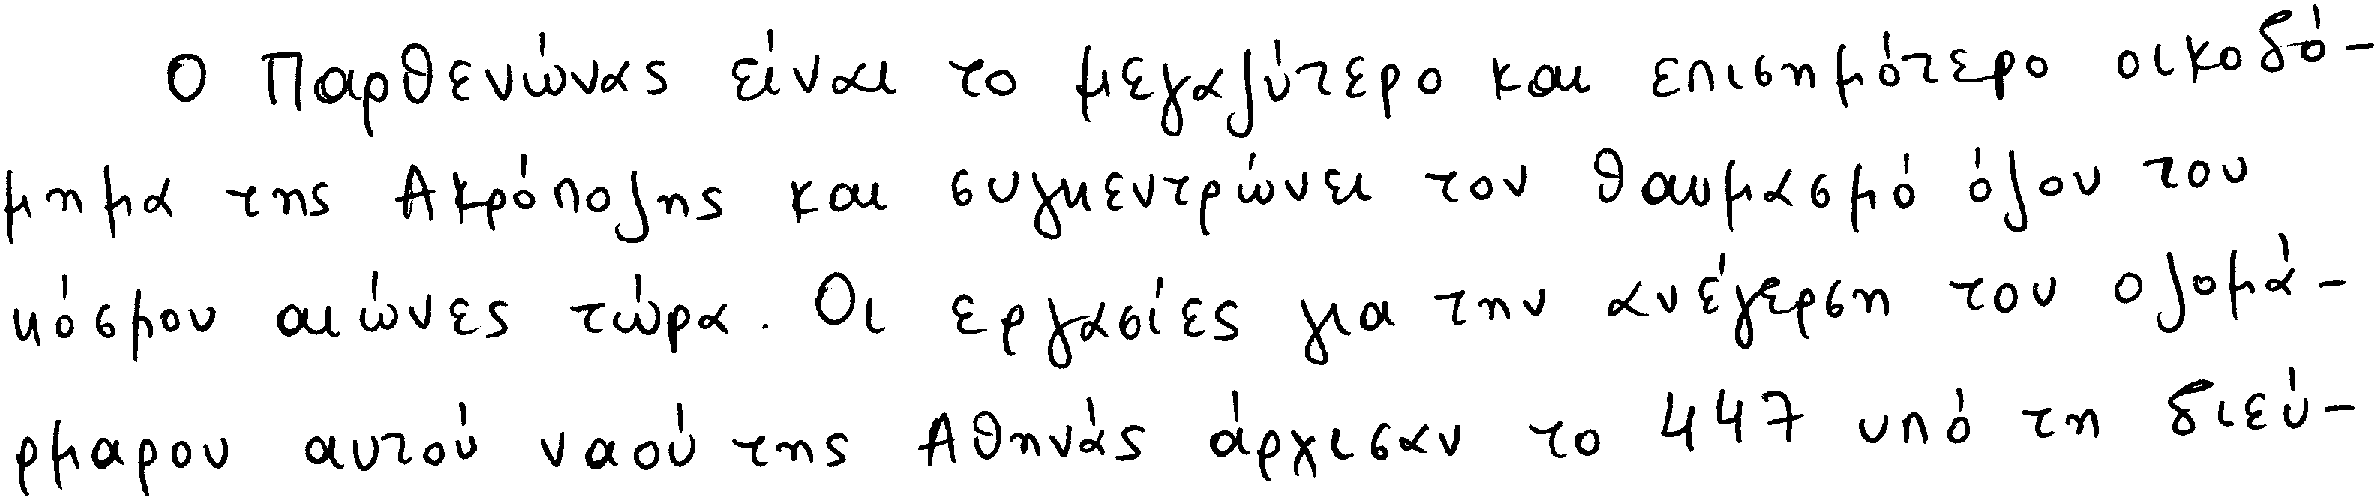 Ο Παρθενώνας είναι το μεγαλύτερο και επισημότερο οικοδό-
μημα της Ακρόπολης και συγκεντρώνει τον θαυμασμό όλου του
κόσμου αιώνες τώρα. Οι εργασίες για την ανέγερση του ολομά-
ρμαρου αυτού ναού της Αθηνάς άρχισαν το 447 υπό τη διεύ-